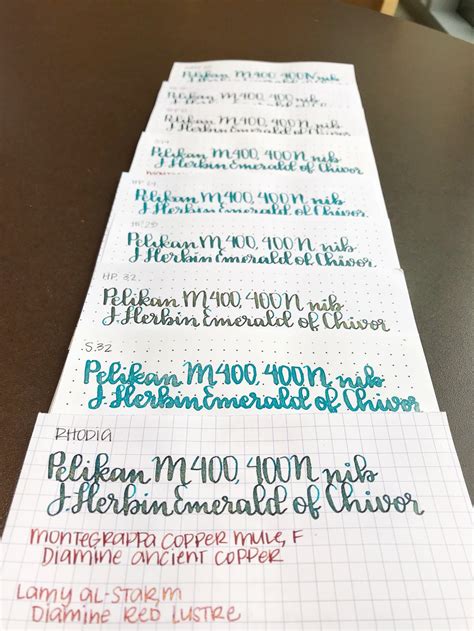 Pelikan M400, 400N nib
Pelikan M400, 400 nib
J. Herbin Emerald of Chivor
Pelikan M400, 400N nib
J. Herbin Emerald of Chivor
Pelikan M400, 400N nib
J. Herbin Emerald of Chivor
Pelikan M400, 400N nib
J. Herbin Emerald of Chivor.
HP. 32
Pelikan M400, 400N nib
J. Herbin Emerald of Chivor
S.32
Pelikan M400, 400N nib
J. Herbin Emerald of Chivor
RHODIA
Pelikan M400, 400N nib
J. Herbin Emerald of Chivor
Montegrappa Copper Mule, F
Diamine Ancient Copper
Lamy Al-Star, M
Diamine Red Lustre